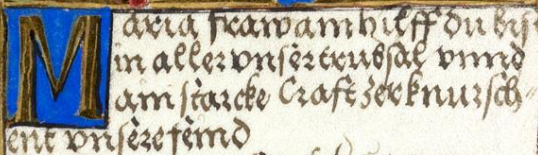 Maria fraw am hilff du bist
in aller vnser trubsal vnnd
am starcke Craft zerknursch-
ent vnsere feind